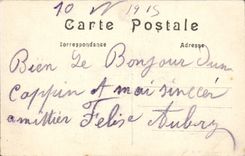 10 N 1915
Carte Postale
Correspondance Adresse
Bien Le Bonjour d'un
Coppin et mai sincer
amittier Felise Aubery